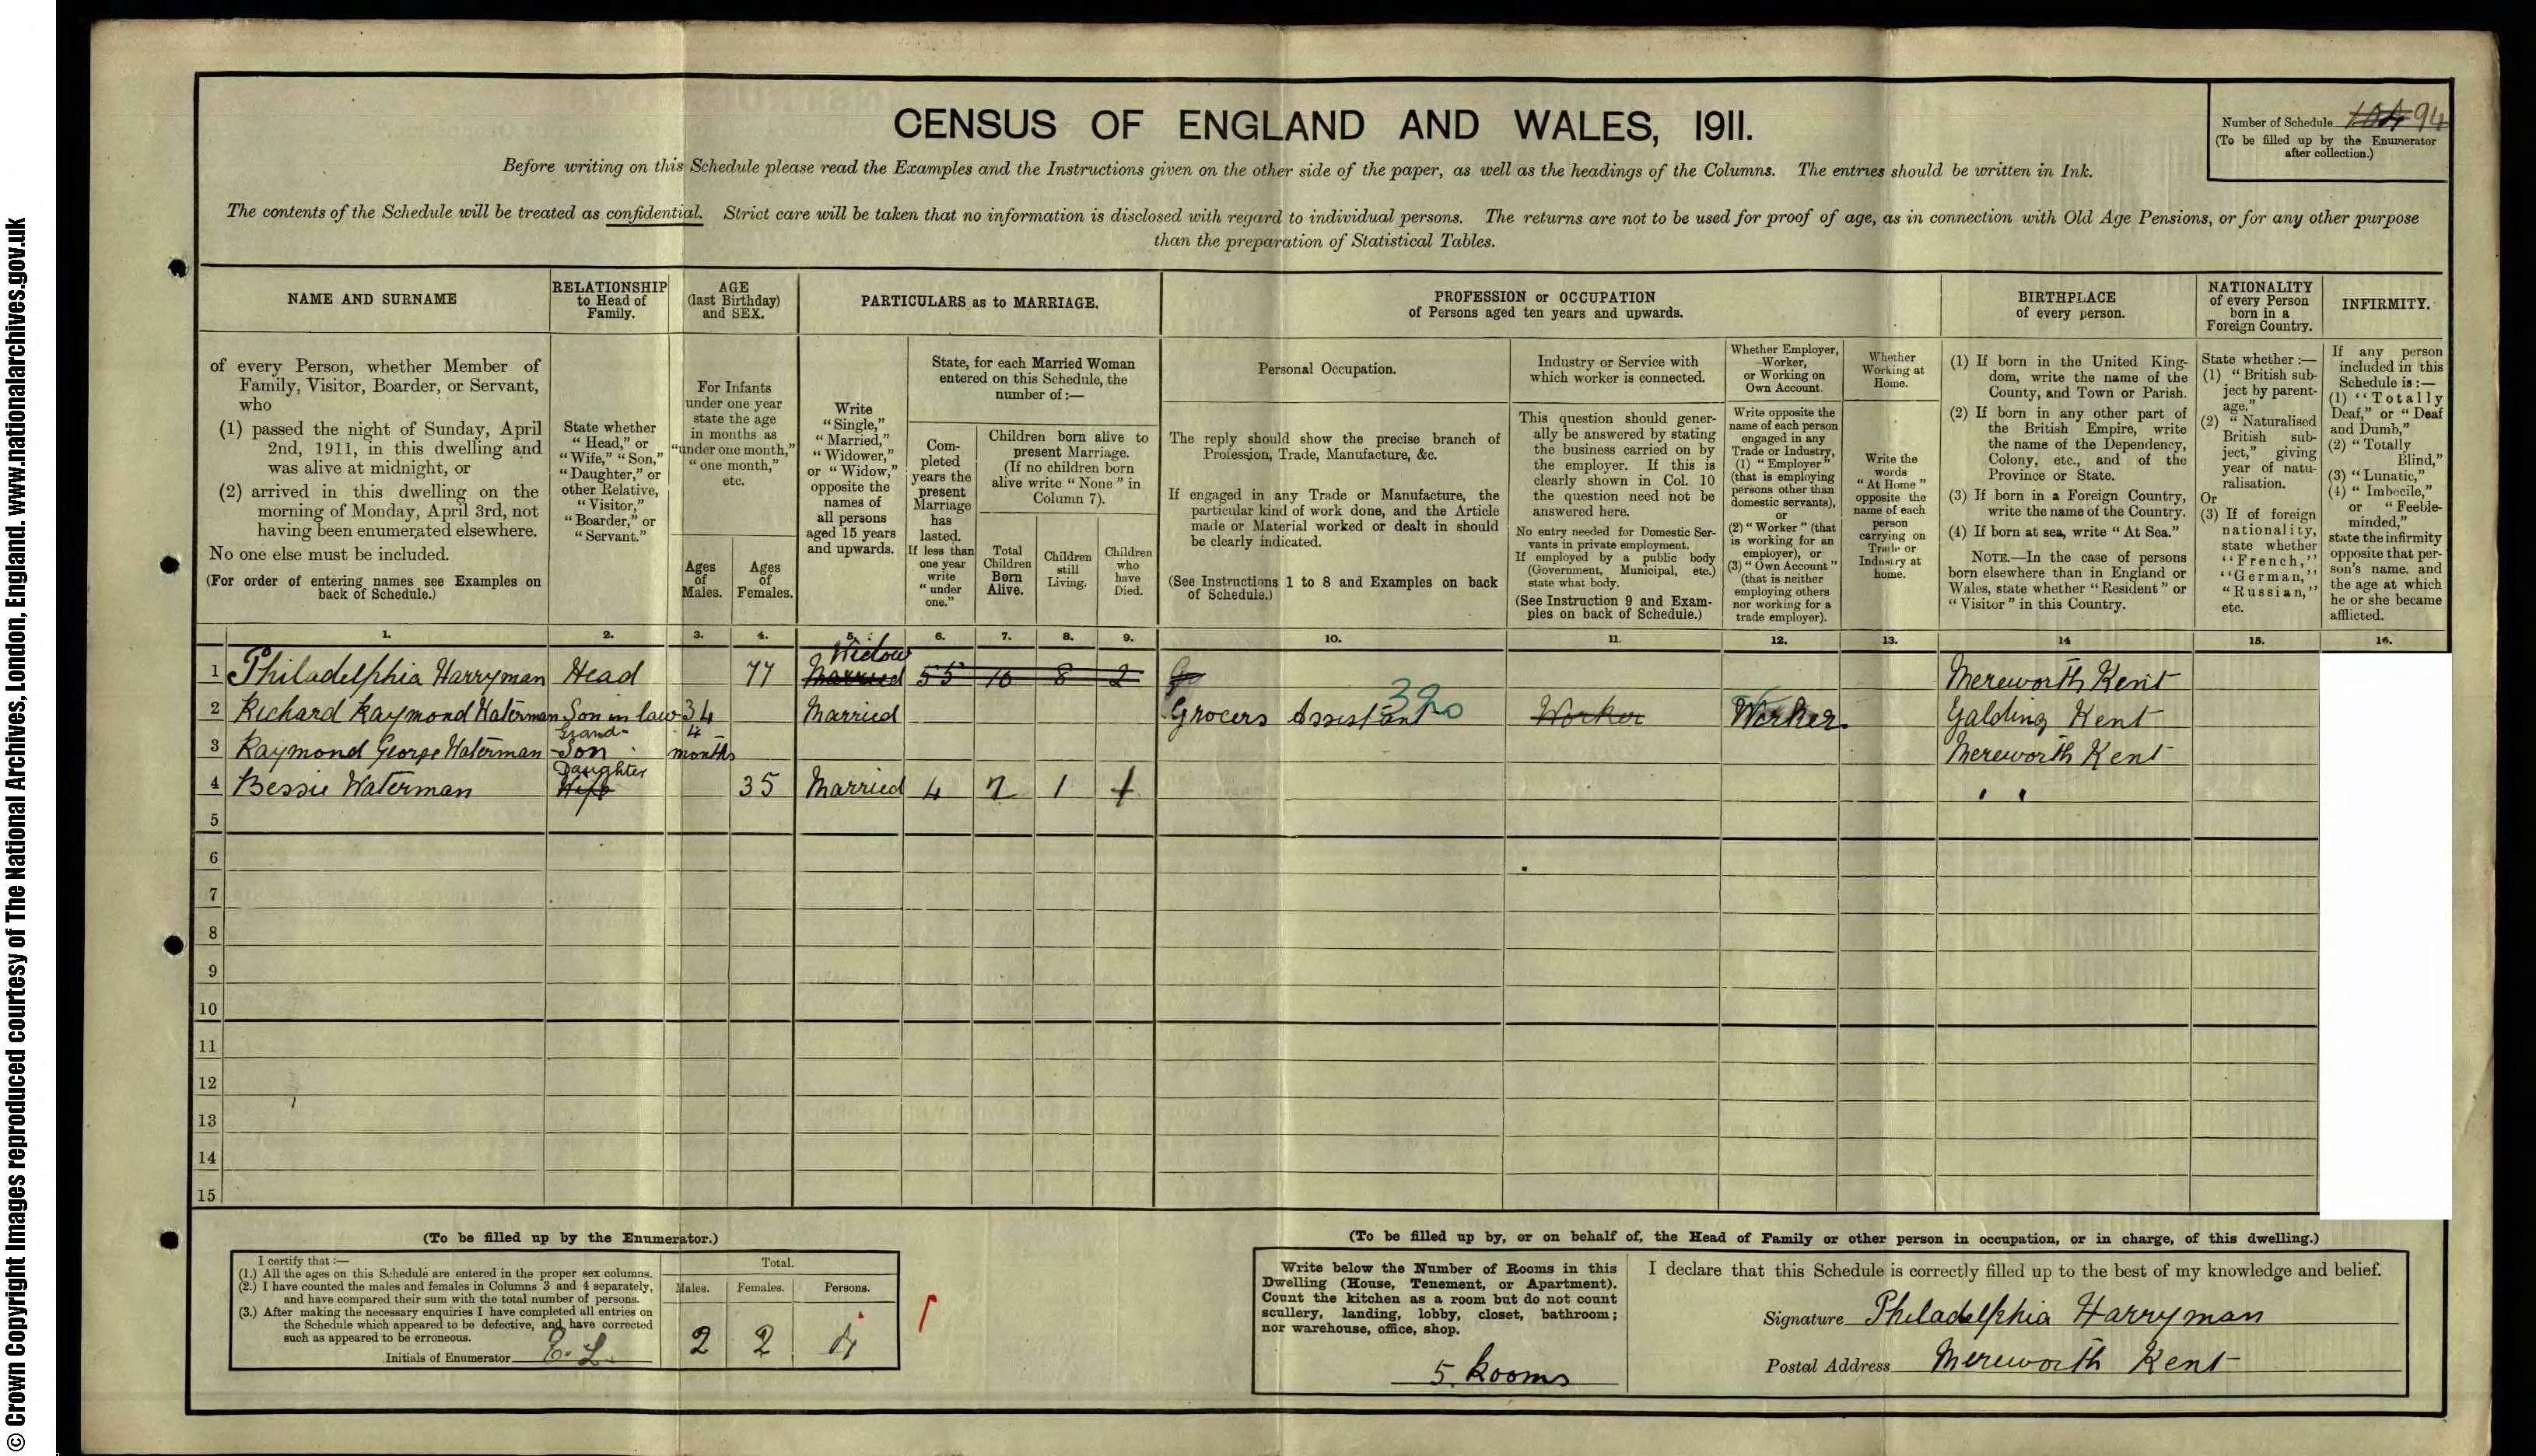 © Crown Copyright Images reproduced courtesy of The National Archives, London, England. www.nationalarchives.gov.uk
CENSUS OF ENGLAND AND WALES, 1911.
Number of Schedule 104 94
(To be filled up by the Enumerator
after collection.)
Before writing on this Schedule please read the Examples and the Instructions given on the other side of the paper, as well as the headings of the Columns. The entries should be written in Ink.
The contents of the Schedule will be treated as confidential. Strict care will be taken that no information is disclosed with regard to individual persons. The returns are not to be used for proof of age, as in connection with Old Age Pensions, or for any other purpose
than the preparation of Statistical Tables.
NAME AND SURNAME
of every Person, whether Member of
Family, Visitor, Boarder, or Servant,
who
(1) passed the night of Sunday, April
2nd, 1911, in this dwelling and
was alive at midnight, or
(2) arrived in this dwelling on the
morning of Monday, April 3rd, not
having been enumerated elsewhere.
No one else must be included.
(For order of entering names see Examples on
back of Schedule.)
1.
RELATIONSHIP
to Head of
Family.
State whether
"Head," or
"Wife," "Son,"
"Daughter," or
other Relative,
"Visitor,"
"Boarder," or
"Servant."
2.
AGE
(last Birthday)
and SEX.
For Infants
under one year
state the age
in months as
"under one month,"
"one month,"
etc.
Ages
of
Males.
3.
Ages
of
Females.
4.
PARTICULARS as to MARRIAGE.
Write
"Single,"
"Married,"
"Widower,"
or "Widow,"
opposite the
names of
all persons
aged 15 years
and upwards.
5.
State, for each Married Woman
entered on this Schedule, the
number of :—
Com-
pleted
years the
present
Marriage
has
lasted.
If less than
one year
write
"under
one."
6.
Children born alive to
present Marriage.
(If no children born
alive write "None" in
Column 7).
Total
Children
Born
Alive.
7.
Children
still
Living.
8.
Children
who
have
Died.
9.
PROFESSION or OCCUPATION
of Persons aged ten years and upwards.
Personal Occupation.
The reply should show the precise branch of
Profession, Trade, Manufacture, &c.
If engaged in any Trade or Manufacture, the
particular kind of work done, and the Article
made or Material worked or dealt in should
be clearly indicated.
(See Instructions 1 to 8 and Examples on back
of Schedule.)
10.
Industry or Service with
which worker is connected.
This question should gener-
ally be answered by stating
the business carried on by
the employer. If this is
clearly shown in Col. 10
the question need not be
answered here.
No entry needed for Domestic Ser-
vants in private employment.
If employed by a public body
(Government, Municipal, etc.)
state what body.
(See Instruction 9 and Exam-
ples on back of Schedule.)
11.
Whether Employer,
Worker,
or Working on
Own Account.
Write opposite the
name of each person
engaged in any
Trade or Industry,
(1) "Employer"
(that is employing
persons other than
domestic servants),
or
(2) "Worker" (that
is working for an
employer), or
(3) "Own Account"
(that is neither
employing others
nor working for a
trade employer).
12.
Whether
Working at
Home.
Write the
words
"At Home"
opposite the
name of each
person
carrying on
Trade or
Industry at
home.
13.
BIRTHPLACE
of every person.
(1) If born in the United King-
dom, write the name of the
County, and Town or Parish.
(2) If born in any other part of
the British Empire, write
the name of the Dependency,
Colony, etc., and of the
Province or State.
(3) If born in a Foreign Country,
write the name of the Country.
(4) If born at sea, write "At Sea."
NOTE.—In the case of persons
born elsewhere than in England or
Wales, state whether "Resident" or
"Visitor" in this Country.
14
NATIONALITY
of every Person
born in a
Foreign Country.
State whether :—
(1) "British sub-
ject by parent-
age."
(2) "Naturalised
British sub-
ject," giving
year of natu-
ralisation.
Or
(3) If of foreign
nationality,
state whether
"French,"
"German,"
"Russian,"
etc.
15.
INFIRMITY.
If any person
included in this
Schedule is :—
(1) "Totally
Deaf," or "Deaf
and Dumb,"
(2) "Totally
Blind,"
(3) "Lunatic,"
(4) "Imbecile,"
or "Feeble-
minded,"
state the infirmity
opposite that per-
son's name, and
the age at which
he or she became
afflicted.
16.
Widow
1 Philadelphia Harryman Head 77 Married 55 10 8 2 Mereworth Kent
2 Richard Raymond Waterman Son in law 34 Married Grocers Assistant 390 Worker Worker Yalding Kent
Grand- 4
3 Raymond George Waterman Son months Mereworth Kent
Daughter
4 Bessie Waterman Wife 35 Married 4 2 1 1 " "
5
6
7
8
9
10
11
12
13
14
15
(To be filled up by the Enumerator.)
I certify that :—
(1.) All the ages on this Schedule are entered in the proper sex columns.
(2.) I have counted the males and females in Columns 3 and 4 separately,
and have compared their sum with the total number of persons.
(3.) After making the necessary enquiries I have completed all entries on
the Schedule which appeared to be defective, and have corrected
such as appeared to be erroneous.
Initials of Enumerator E. L.
Total.
Males. Females. Persons.
2 2 4
(To be filled up by, or on behalf of, the Head of Family or other person in occupation, or in charge, of this dwelling.)
Write below the Number of Rooms in this
Dwelling (House, Tenement, or Apartment).
Count the kitchen as a room but do not count
scullery, landing, lobby, closet, bathroom;
nor warehouse, office, shop.
5 Rooms
I declare that this Schedule is correctly filled up to the best of my knowledge and belief.
Signature Philadelphia Harryman
Postal Address Mereworth Kent